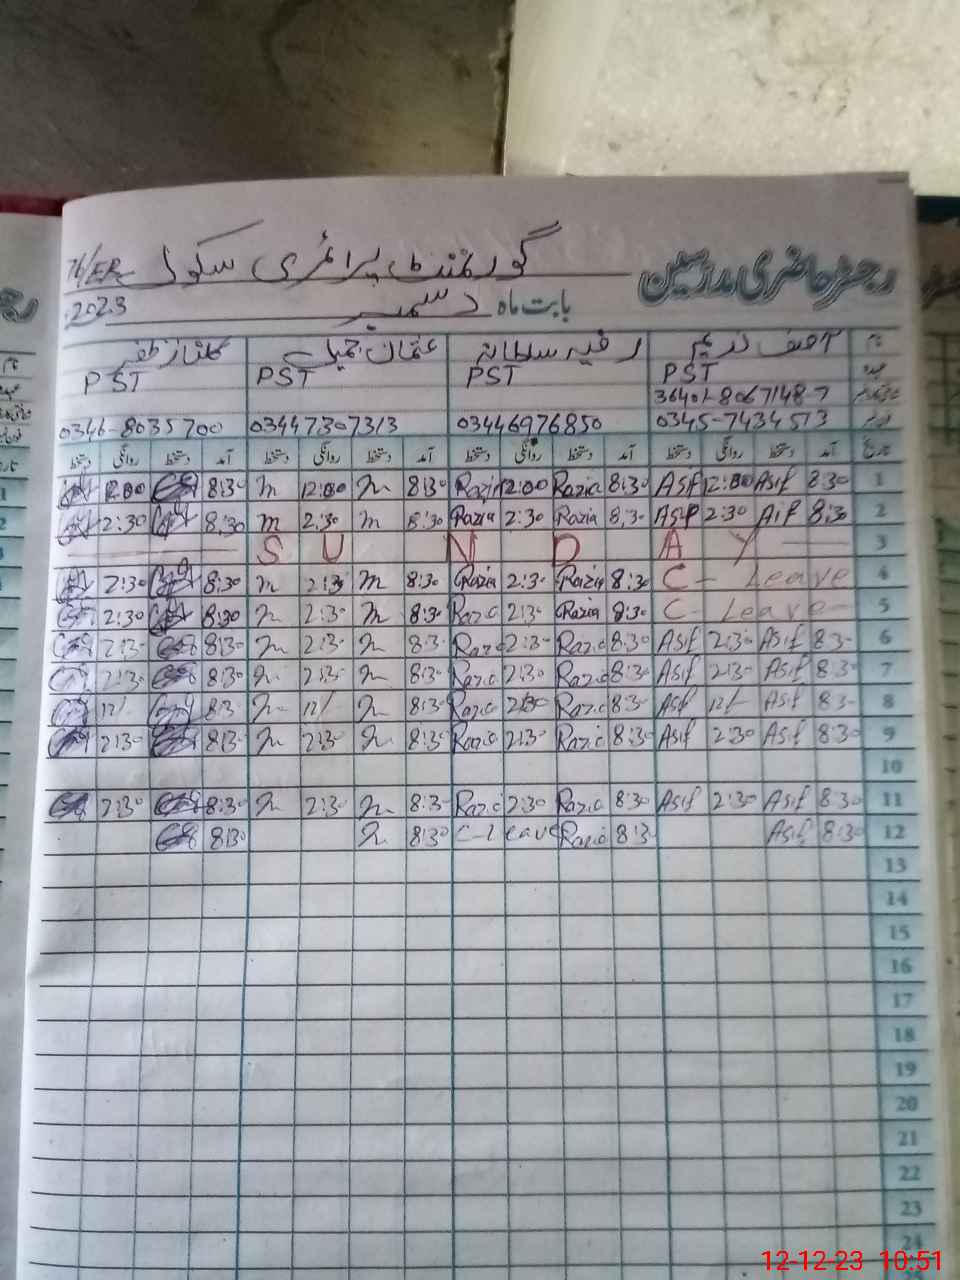 رجسٹر حاضری مدرسین گورنمنٹ پرائمری سکول 76/EB
بابت ماہ دسمبر 2023
نام آصف نذیر رضیہ سلطانہ عثمان جمیل گلناز ظفر
عہدہ PST PST PST PST
36401-8067148-7
0345-7434573 03446976850 03447307313 0346-8035700
تاریخ آمد دستخط روانگی دستخط آمد دستخط روانگی دستخط آمد دستخط روانگی دستخط آمد دستخط روانگی دستخط
1 8:30 Asif 12:00 Asif 8:30 Razia 12:00 Razia 8:30 m 12:00 m 8:30 12:00
2 8:30 Asif 2:30 Asif 8:30 Razia 2:30 Razia 8:30 m 2:30 m 8:30 2:30
3 SUNDAY
4 C- Leave 8:30 Razia 2:30 Razia 8:30 m 2:30 m 8:30 2:30
5 C- Leave 8:30 Razia 2:30 Razia 8:30 m 2:30 m 8:30 2:30
6 8:3- Asif 2:30 Asif 8:30 Razia 2:3- Razia 8:3- m 2:3- m 8:30 2:3-
7 8:30 Asif 2:30 Asif 8:30 Razia 2:30 Razia 8:30 m 2:30 m 8:30 2:30
8 8:3- Asif 12/- Asif 8:3- Razia 2:30 Razia 8:30 m 12/- m 8:3- 12/-
9 8:30 Asif 2:30 Asif 8:30 Razia 2:30 Razia 8:3- m 2:30 m 8:3- 2:30
10
11 8:30 Asif 2:30 Asif 8:30 Razia 2:30 Razia 8:3- m 2:30 m 8:30 2:30
12 8:30 Asif 8:3- Razia C-Leave 8:30 m 8:30
13
14
15
16
17
18
19
20
21
22
23
24
12-12-23 10:51